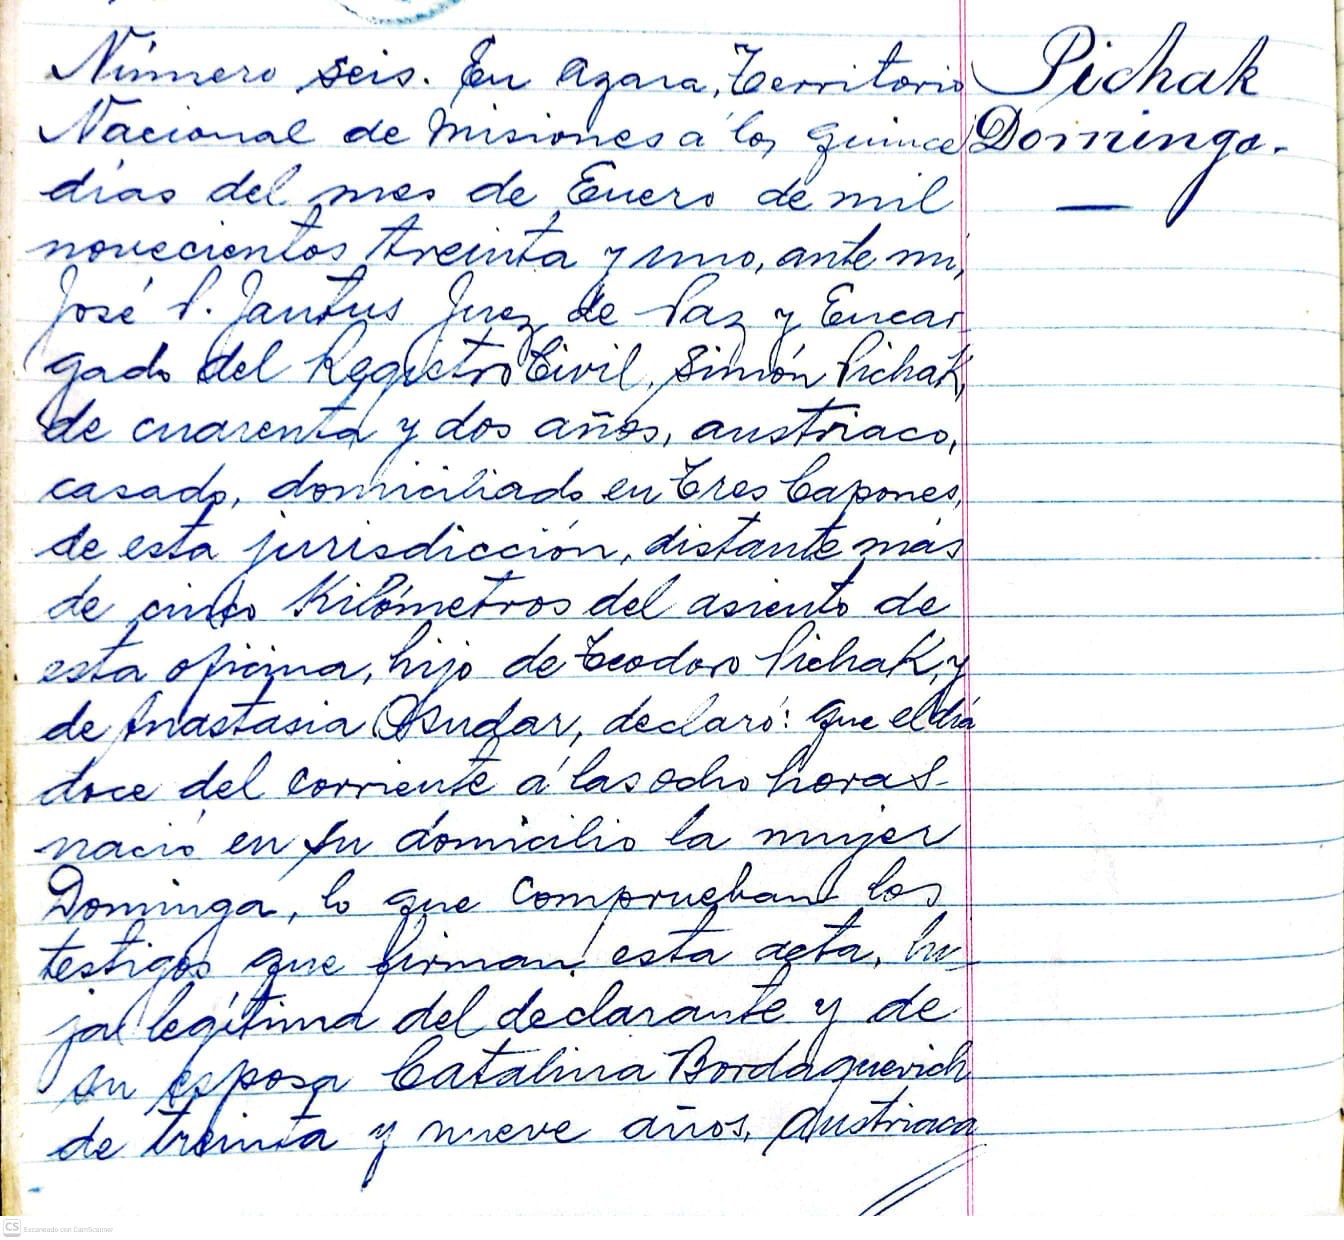 Pichak
Dominga.
Número seis. En Azara, Territorio
Nacional de Misiones a los quince
días del mes de Enero de mil
novecientos treinta y uno, ante mí,
José P. Jantus Juez de Paz y Encar-
gado del Registro Civil, Simón Pichak,
de cuarenta y dos años, austriaco,
casado, domiciliado en Tres Capones,
de esta jurisdicción, distante más
de cinco Kilómetros del asiento de
esta oficina, hijo de Teodoro Pichak, y
de Anastasia Osudar, declaró: que el día
doce del corriente á las ocho horas
nació en su domicilio la mujer
Dominga, lo que comprueban los
testigos que firman esta acta, hi-
ja legítima del declarante y de
su esposa Catalina Bordaquevich
de treinta y nueve años, austriaca
CS Escaneado con CamScanner